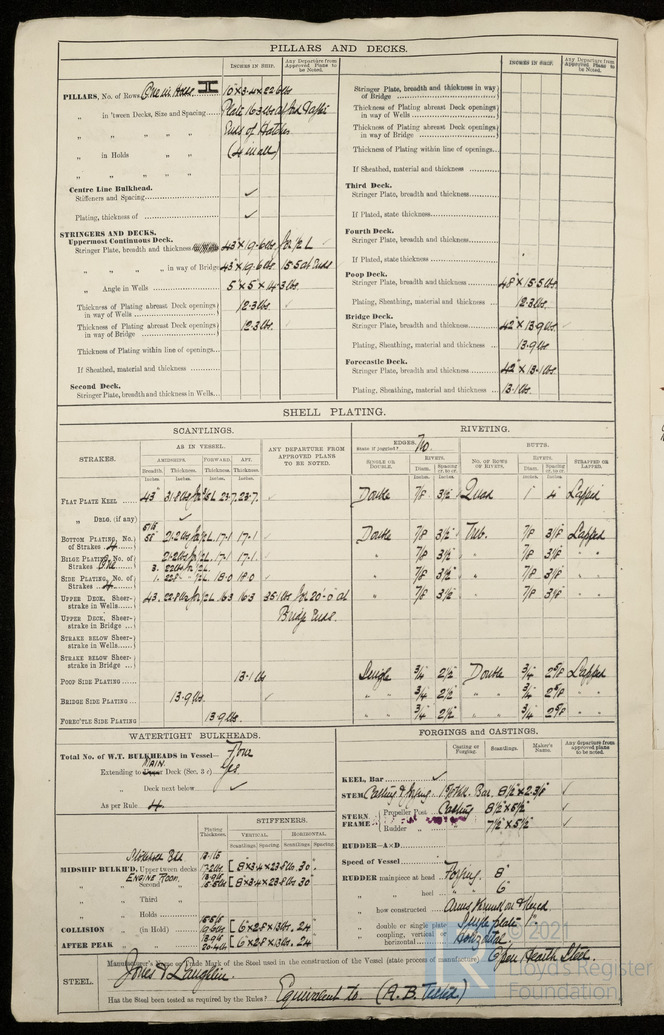 PILLARS AND DECKS.
INCHES IN SHIP.
Any Departure from Approved Plans to be Noted.
PILLARS, No. of Rows One in Holds 10 × 3.4 × 22.6 lbs
„ in 'tween Decks, Size and Spacing Plate 16.3 lbs
„ „ „ „ Ends of Hatches
„ in Holds „ „ (4 in all)
„ „ „ „
Centre Line Bulkhead.
Stiffeners and Spacing ✓
Plating, thickness of ✓
STRINGERS AND DECKS.
Uppermost Continuous Deck.
Stringer Plate, breadth and thickness 43" × 19.6 lbs for ½ L ✓
„ „ „ „ in way of Bridge 43" × 19.6 lbs. 15.5 at ends ✓
„ Angle in Wells 5" × 5" × 14.3 lbs.
Thickness of Plating abreast Deck openings in way of Wells 12.3 lbs. ✓
Thickness of Plating abreast Deck openings in way of Bridge 12.3 lbs. ✓
Thickness of Plating within line of openings...
If Sheathed, material and thickness
Second Deck.
Stringer Plate, breadth and thickness in Wells...
INCHES IN SHIP.
Any Departure from Approved Plans to be Noted.
Stringer Plate, breadth and thickness in way of Bridge
Thickness of Plating abreast Deck openings in way of Wells
Thickness of Plating abreast Deck openings in way of Bridge
Thickness of Plating within line of openings...
If Sheathed, material and thickness
Third Deck.
Stringer Plate, breadth and thickness
If Plated, state thickness
Fourth Deck.
Stringer Plate, breadth and thickness
If Plated, state thickness
Poop Deck.
Stringer Plate, breadth and thickness 48" × 15.5 lbs.
Plating, Sheathing, material and thickness 12.3 lbs.
Bridge Deck.
Stringer Plate, breadth and thickness 42" × 13.9 lbs ✓
Plating, Sheathing, material and thickness 13.9 lbs.
Forecastle Deck.
Stringer Plate, breadth and thickness 42" × 13.1 lbs.
Plating, Sheathing, material and thickness 13.1 lbs.
SHELL PLATING.
SCANTLINGS.
RIVETING.
STRAKES.
AS IN VESSEL.
AMIDSHIPS. FORWARD. AFT.
Breadth. Thickness. Thickness. Thickness.
ANY DEPARTURE FROM APPROVED PLANS TO BE NOTED.
EDGES.
State if joggled? No.
SINGLE OR DOUBLE.
RIVETS.
Diam. Spacing cr. to cr.
BUTTS.
NO. OF ROWS OF RIVETS.
RIVETS.
Diam. Spacing cr. to cr.
STRAPPED OR LAPPED.
FLAT PLATE KEEL 43" 31.8 lbs for ⅗ L 23.7. 23.7. ✓ Double 7/8 3½ Quad 1 4 Lapped
„ DBLG. (if any) ✓
BOTTOM PLATING, No. of Strakes 4 58" 21.2 lbs for ½ L. 17.1 17.1 ✓ Double 7/8 3½ Treb. 7/8 3⅛ Lapped
BILGE PLATING, No. of Strakes One 21.2 lbs for ½ L. 17.1 17.1. ✓ „ 7/8 3½ „ 7/8 3⅛ „ „
SIDE PLATING, No. of Strakes 4 18.0 18.0 ✓ „ 7/8 3½ „ 7/8 3⅛ „ „
UPPER DECK, Sheerstrake in Wells 43. 22.8 lbs for ½ L 16.3 16.3 35 lbs for 20'-0 at Bridge Ends. „ 7/8 3½ „ 7/8 3⅛ „ „
UPPER DECK, Sheerstrake in Bridge
STRAKE BELOW Sheerstrake in Wells
STRAKE BELOW Sheerstrake in Bridge
POOP SIDE PLATING 13.1 lbs Single ¾ 2½ Double ¾ 2⅝ Lapped
BRIDGE SIDE PLATING 13.9 lbs. ✓ „ ¾ 2½ „ ¾ 2⅝ „ „
FORE'C'TLE SIDE PLATING 13.9 lbs. „ ¾ 2½ „ ¾ 2⅝ „ „
WATERTIGHT BULKHEADS.
Total No. of W.T. BULKHEADS in Vessel— Four
MAIN.
Extending to Upper Deck (Sec. 3 c) Yes.
„ Deck next below ✓
As per Rule 4.
Plating Thickness.
STIFFENERS.
VERTICAL. HORIZONTAL.
Scantlings Spacing Scantlings Spacing
MIDSHIP BULKH'D, Upper tween decks 17.2 lbs [ 8 × 3.4 × 23.8 lbs. 30".
ENGINE ROOM.
„ Second „ [ 8 × 3.4 × 23.8 lbs 30"
„ Third „
„ Holds
COLLISION „ (in Hold) [ 6 × 2.8 × 13 lbs. 24"
AFTER PEAK „ „ [ 6 × 2.8 × 13 lbs. 24
FORGINGS and CASTINGS.
Casting or Forging. Scantlings. Maker's Name. Any departure from approved plans to be noted.
KEEL, Bar ✓
STEM Casting & Forging Bar 8½" × 2⅜" ✓
STERN FRAME
Propeller Post Casting 8½" × 5½" ✓
Rudder „ „ 7½" × 5½" ✓
RUDDER—A×D
Speed of Vessel ✓
RUDDER mainpiece at head Forging 8"
„ „ heel „ 6"
„ how constructed
„ double or single plate Single plate 1".
„ coupling, vertical or horizontal Horizontal
STEEL.
Manufacturer's Name or Trade Mark of the Steel used in the construction of the Vessel (state process of manufacture) Open Hearth Steel.
Jones & Laughlin.
Has the Steel been tested as required by the Rules? Equivalent to (A.B. Tested)
© 2021
Lloyd's Register
Foundation